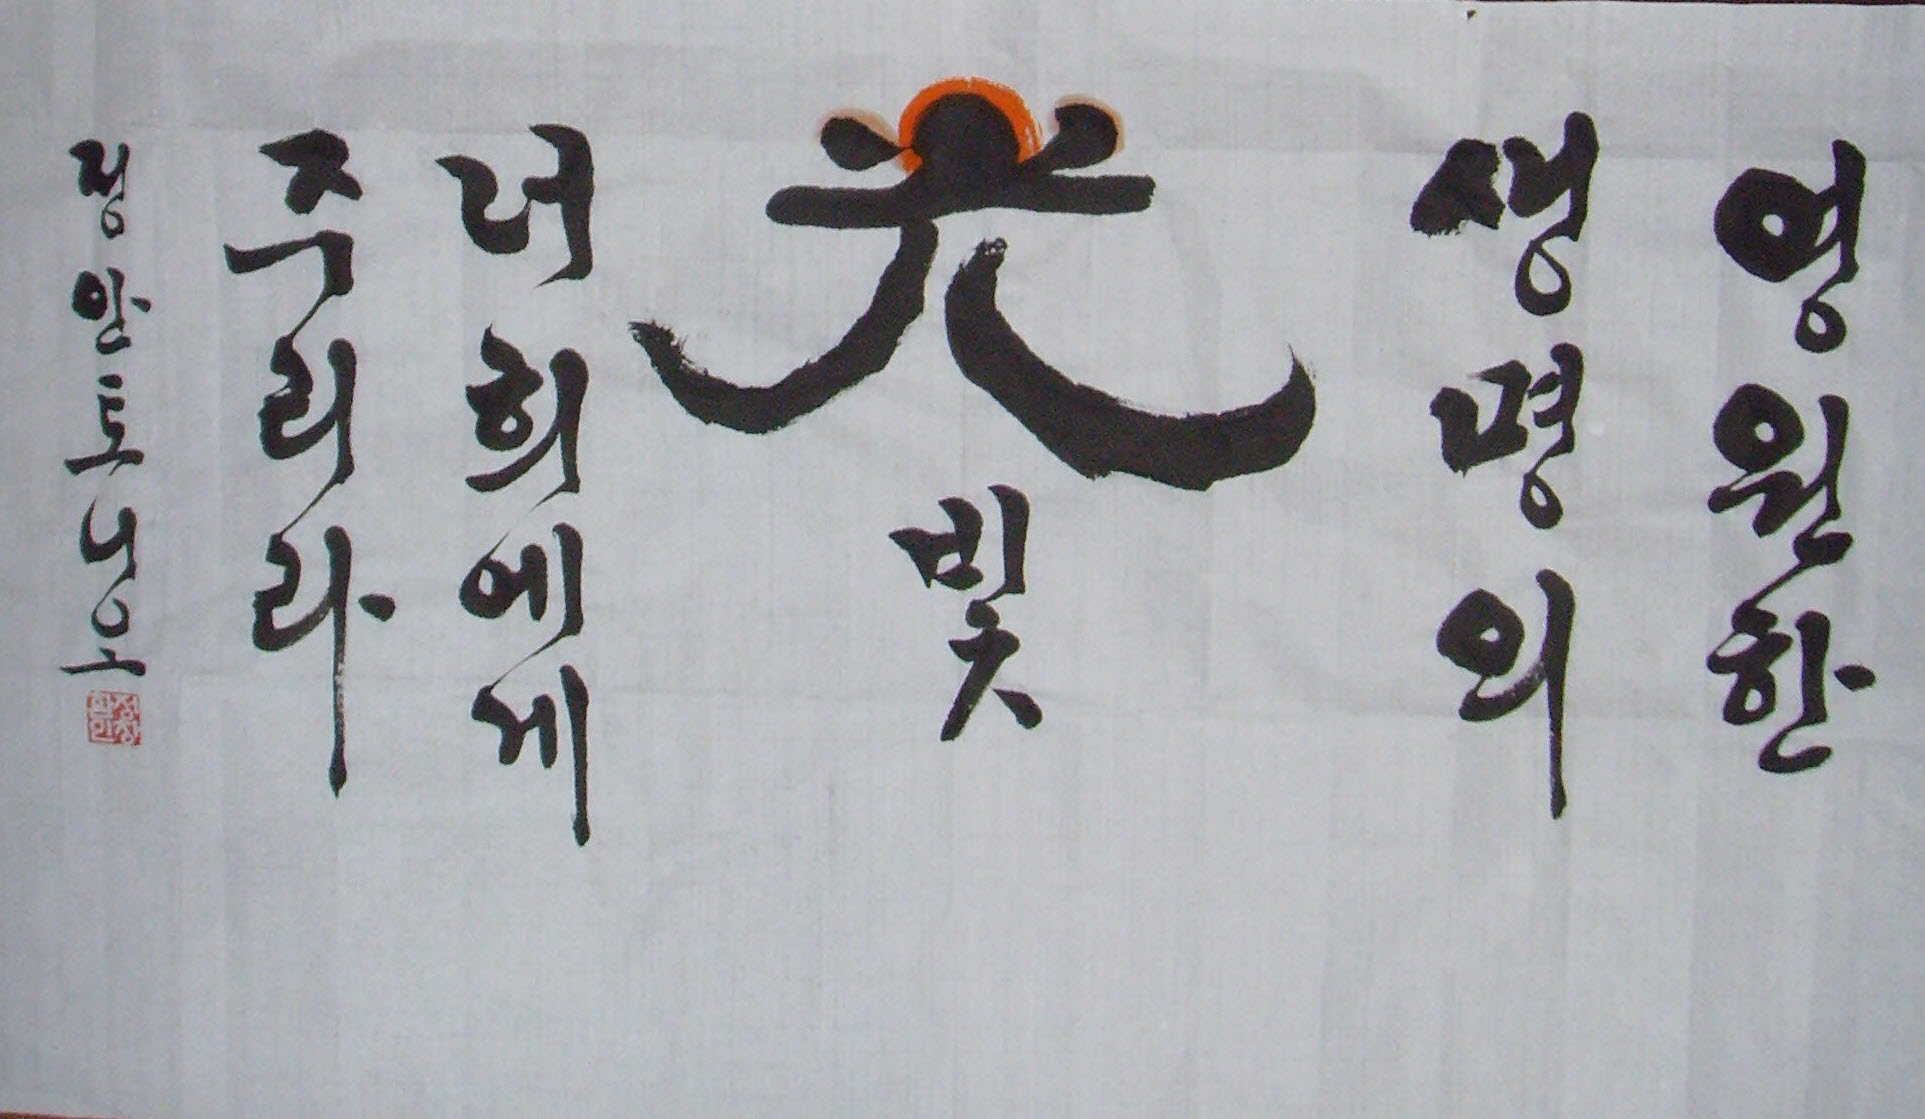 영원한
생명의
光
빛
너희에게
주리라
정안토니오